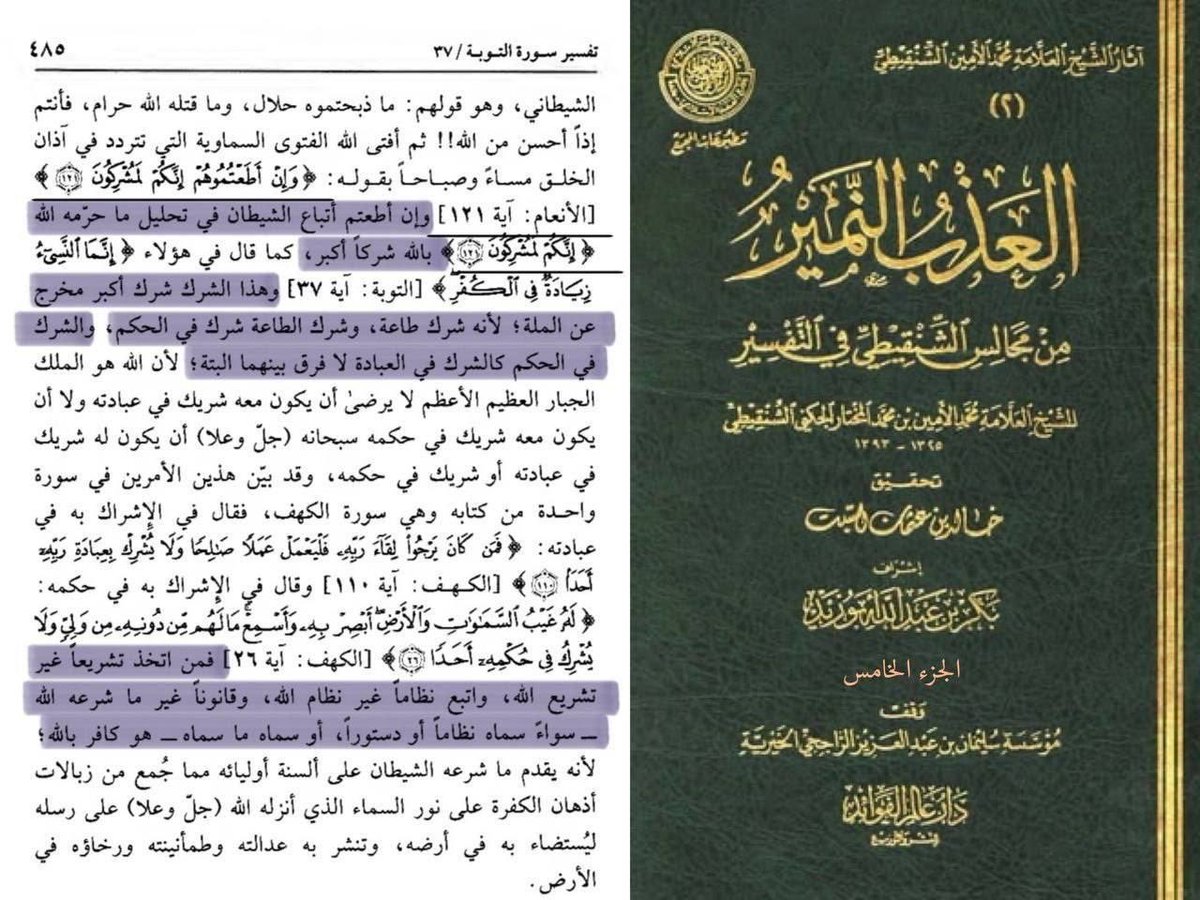 تفسير سورة التوبة / ٣٧
٤٨٥
الشيطاني، وهو قولهم: ما ذبحتموه حلال، وما قتله الله حرام، فأنتم
إذاً أحسن من الله!! ثم أفتى الله الفتوى السماوية التي تتردد في آذان
الخلق مساءً وصباحاً بقوله: ﴿وَإِنْ أَطَعْتُمُوهُمْ إِنَّكُمْ لَمُشْرِكُونَ ١٢١﴾
[الأنعام: آية ١٢١] وإن أطعتم أتباع الشيطان في تحليل ما حرّمه الله
﴿إِنَّكُمْ لَمُشْرِكُونَ ١٢١﴾ بالله شركاً أكبر، كما قال في هؤلاء ﴿إِنَّمَا النَّسِيءُ
زِيَادَةٌ فِي الْكُفْرِ﴾ [التوبة: آية ٣٧] وهذا الشرك شرك أكبر مخرج
عن الملة؛ لأنه شرك طاعة، وشرك الطاعة شرك في الحكم، والشرك
في الحكم كالشرك في العبادة لا فرق بينهما البتة؛ لأن الله هو الملك
الجبار العظيم الأعظم لا يرضىٰ أن يكون معه شريك في عبادته ولا أن
يكون معه شريك في حكمه سبحانه (جلّ وعلا) أن يكون له شريك
في عبادته أو شريك في حكمه، وقد بيّن هذين الأمرين في سورة
واحدة من كتابه وهي سورة الكهف، فقال في الإشراك به في
عبادته: ﴿فَمَن كَانَ يَرْجُوا لِقَاءَ رَبِّهِ فَلْيَعْمَلْ عَمَلًا صَالِحًا وَلَا يُشْرِكْ بِعِبَادَةِ رَبِّهِ
أَحَدًا ١١٠﴾ [الكهف: آية ١١٠] وقال في الإشراك به في حكمه:
﴿لَهُ غَيْبُ السَّمَاوَاتِ وَالْأَرْضِ أَبْصِرْ بِهِ وَأَسْمِعْ مَا لَهُم مِّن دُونِهِ مِن وَلِيٍّ وَلَا
يُشْرِكُ فِي حُكْمِهِ أَحَدًا ٢٦﴾ [الكهف: آية ٢٦] فمن اتخذ تشريعاً غير
تشريع الله، واتبع نظاماً غير نظام الله، وقانوناً غير ما شرعه الله
ــ سواءً سماه نظاماً أو دستوراً، أو سماه ما سماه ــ هو كافر بالله؛
لأنه يقدم ما شرعه الشيطان على ألسنة أوليائه مما جُمع من زبالات
أذهان الكفرة على نور السماء الذي أنزله الله (جلّ وعلا) على رسله
ليُستضاء به في أرضه، وتنشر به عدالته وطمأنينته ورخاؤه في
الأرض.
آثار الشيخ العلامة محمد الأمين الشنقيطي
(٢)
مطبوعات المجمع
العَذْبُ النَّمِيرُ
مِنْ مَجَالِسِ الشِّنْقِيطِيِّ فِي التَّفْسِيرِ
للشيخ العلامة محمد الأمين بن محمد المختار الجكني الشنقيطي
١٣٢٥ - ١٣٩٣
تحقيق
خالد بن عثمان السبت
إشراف
بكر بن عبد الله أبو زيد
الجزء الخامس
وقف
مؤسسة سليمان بن عبد العزيز الراجحي الخيرية
دار عالم الفوائد
للنشر والتوزيع